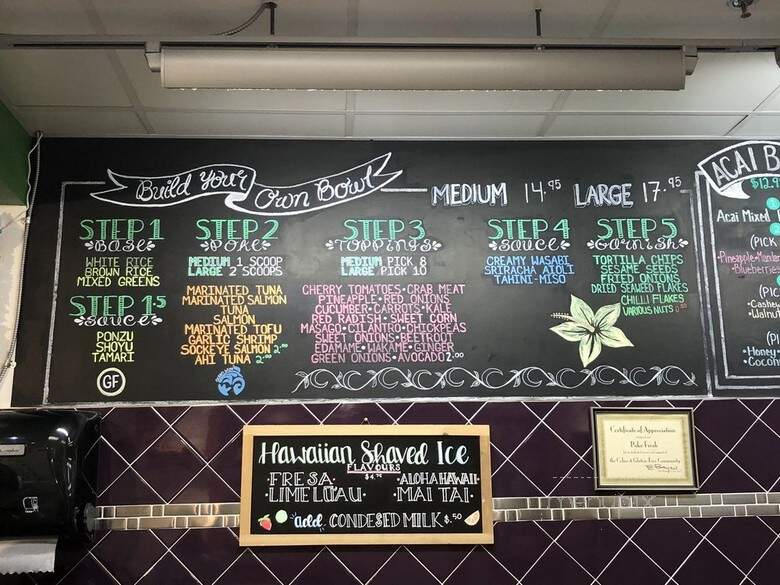 Build Your Own Bowl
MEDIUM 14.95 LARGE 17.95
STEP 1
BASE
WHITE RICE
BROWN RICE
MIXED GREENS
STEP 1.5
SAUCE
PONZU
SHOYU
TAMARI
GF
STEP 2
POKE
MEDIUM 1 SCOOP
LARGE 2 SCOOPS
MARINATED TUNA
MARINATED SALMON
TUNA
SALMON
MARINATED TOFU
GARLIC SHRIMP
SOCKEYE SALMON 2.00
AHI TUNA 2.00
STEP 3
TOPPINGS
MEDIUM PICK 8
LARGE PICK 10
CHERRY TOMATOES • CRAB MEAT
PINEAPPLE • RED ONIONS
CUCUMBER • CARROTS • MIX
RED RADISH • SWEET CORN
MASAGO • CILANTRO • CHICKPEAS
SWEET ONIONS • BEETROOT
EDAMAME • WAKAME • GINGER
GREEN ONIONS • AVOCADO 2.00
STEP 4
SAUCE
CREAMY WASABI
SRIRACHA AIOLI
TAHINI-MISO
STEP 5
GARNISH
TORTILLA CHIPS
SESAME SEEDS
FRIED ONIONS
DRIED SEAWEED FLAKES
CHILLI FLAKES
VARIOUS NUTS
ACAI B
$12.9
Acai Mixed
(PICK
•Pineapple•Mandar
•Blueberries
(PIC
•Cashew
•Walnut
(PI
•Honey
•Cocon
Hawaiian Shaved Ice
FLAVOURS
•FRESA •ALOHA HAWAII
•LIME LUAU •MAI TAI
add CONDESED MILK $.50
Certificate of Appreciation
Poke Fresh